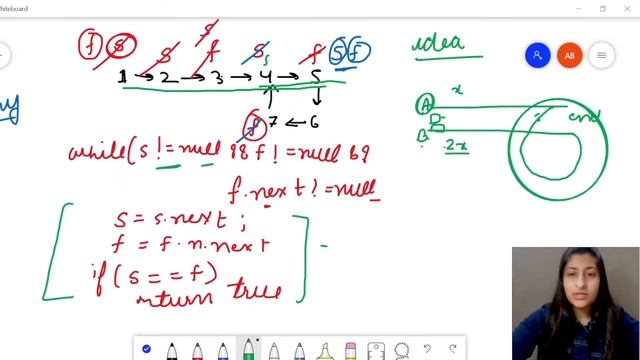 Whiteboard
f s s f s s s f s f
idea
1 → 2 → 3 → 4 → 5
x
A
end
f 7 ← 6
B
2x
while(s != null && f != null &&
f.next != null
s = s.next ;
f = f.n.next
if (s == f)
return true
AB